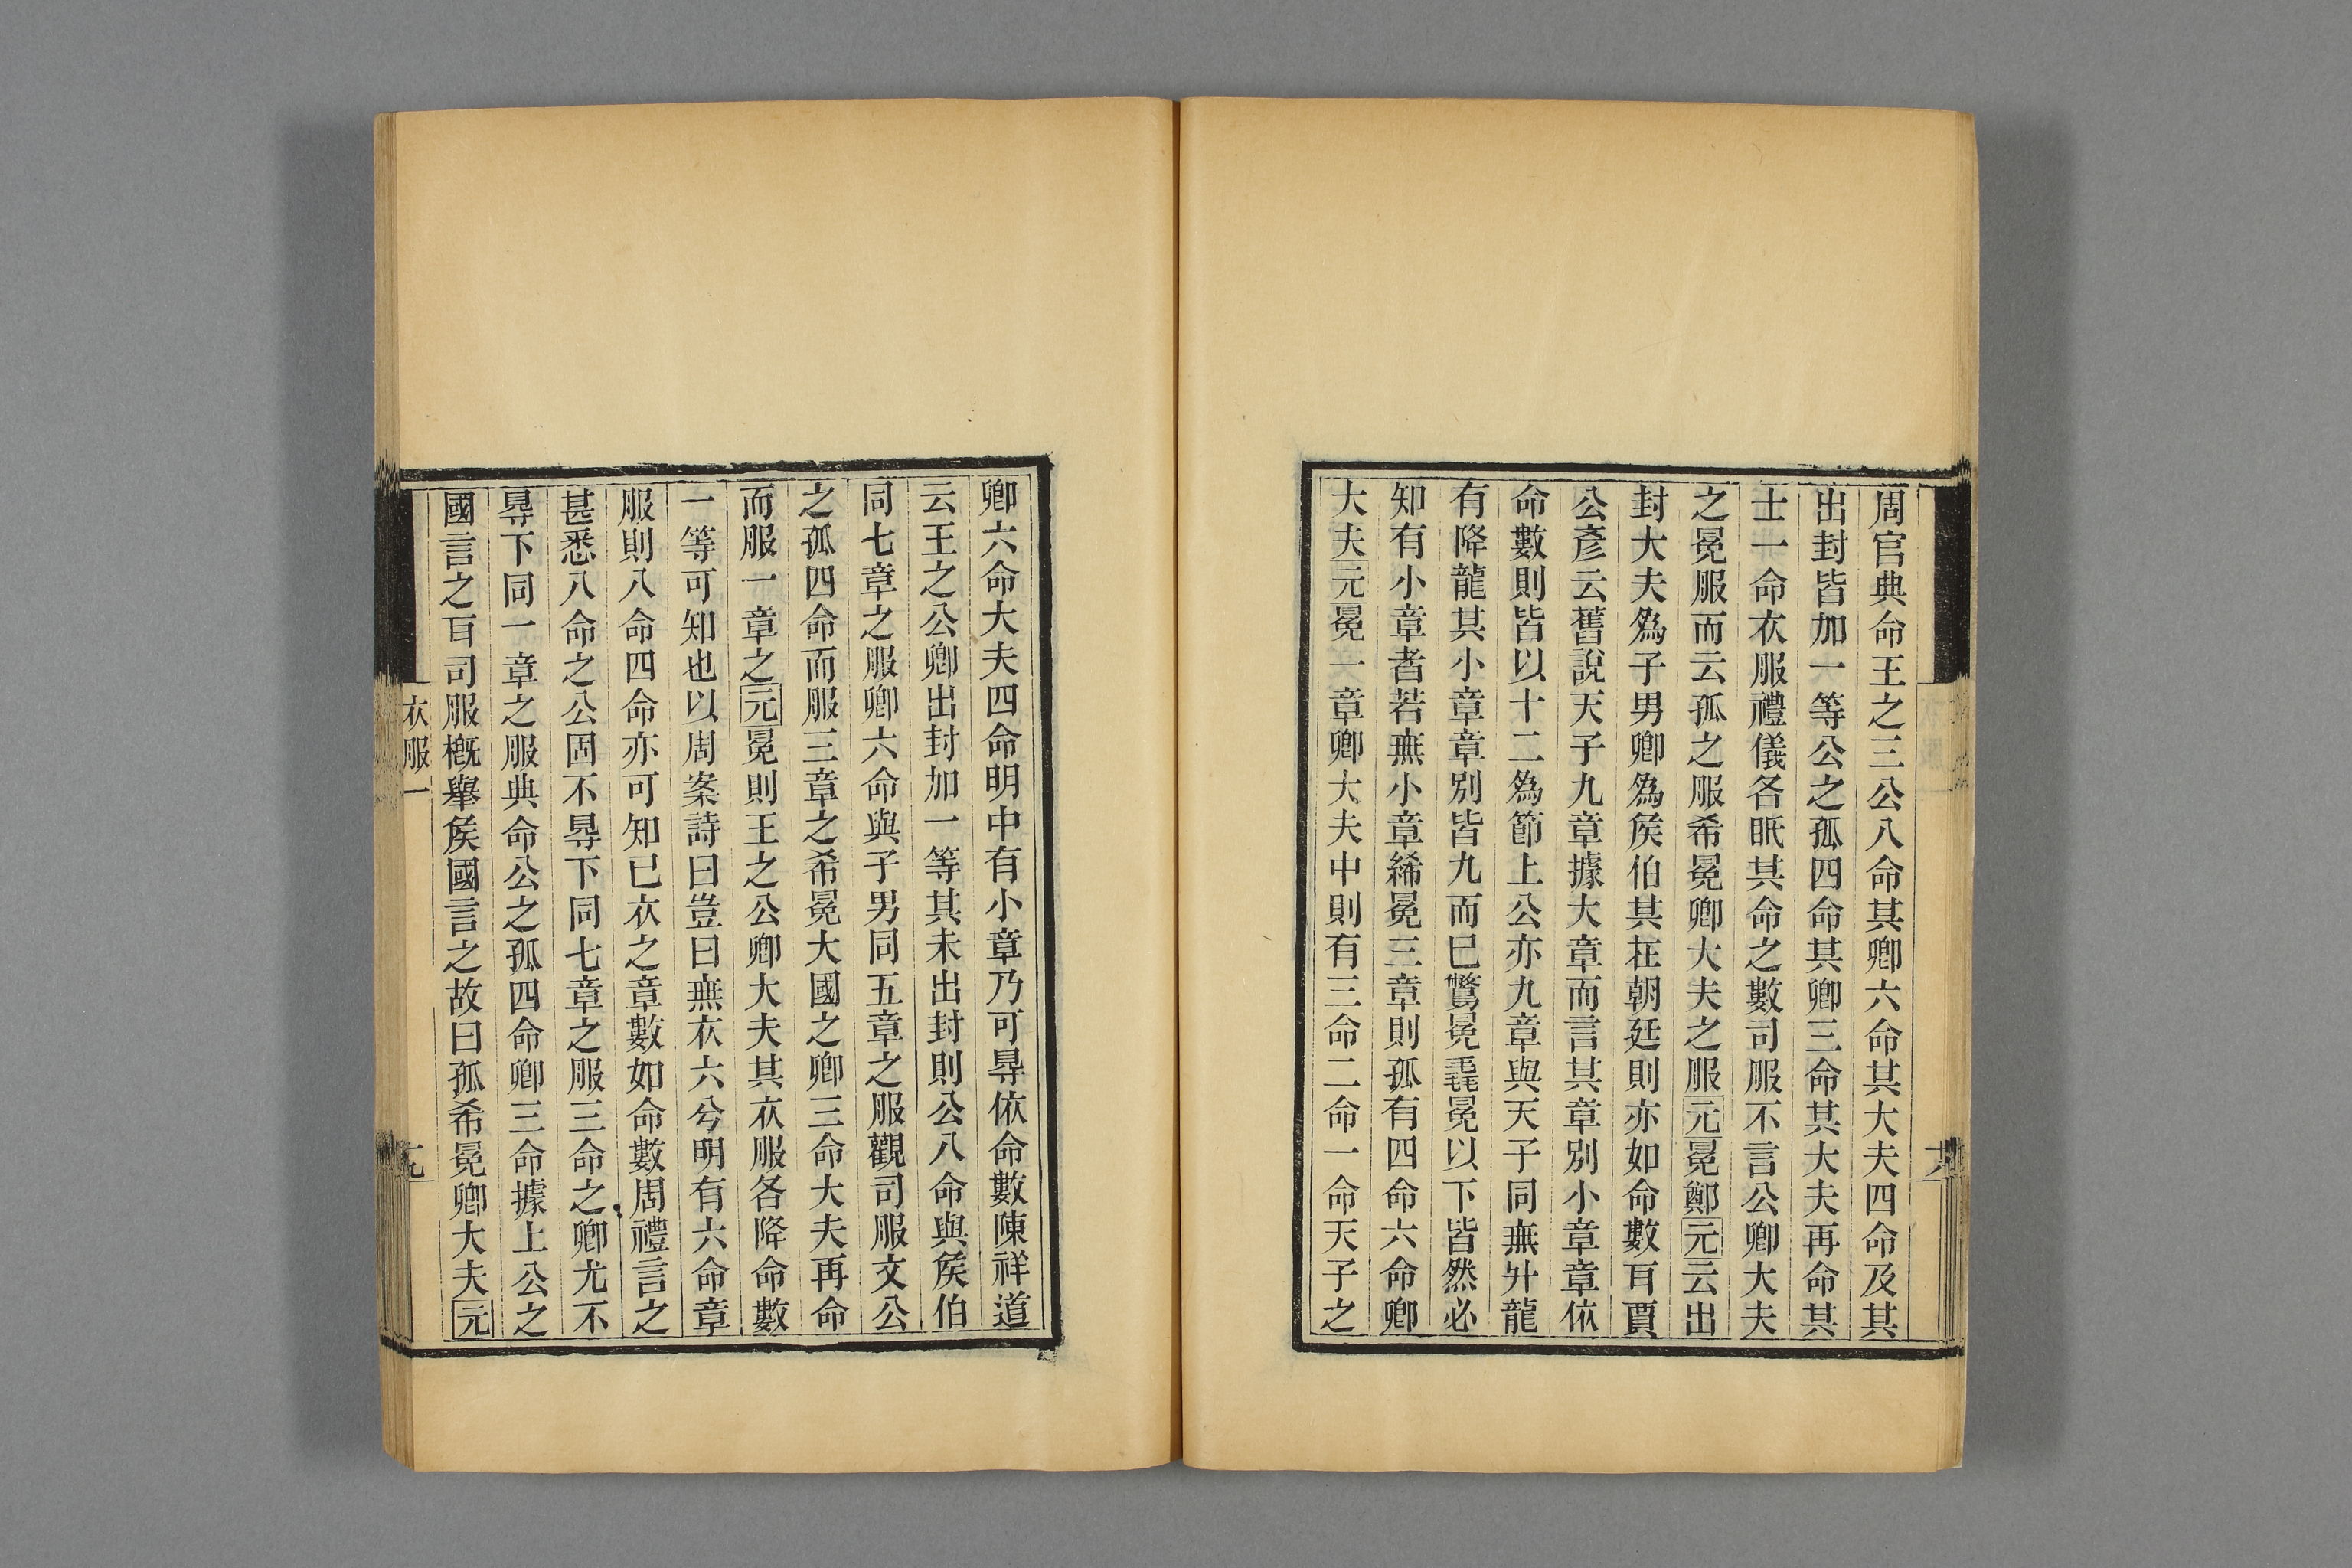 周官典命王之三公八命其卿六命其大夫四命及其
出封皆加一等公之孤四命其卿三命其大夫再命其
士一命衣服禮儀各眡其命之數司服不言公卿大夫
之冕服而云孤之服希冕卿大夫之服元冕鄭元云出
封大夫爲子男卿爲矦伯其在朝廷則亦如命數耳賈
公彥云舊說天子九章據大章而言其章別小章章依
命數則皆以十二爲節上公亦九章與天子同無升龍
有降龍其小章章別皆九而已鷩冕毳冕以下皆然必
知有小章者若無小章絺冕三章則孤有四命六命卿
大夫元冕一章卿大夫中則有三命二命一命天子之
卿六命大夫四命明中有小章乃可㝵依命數陳祥道
云王之公卿出封加一等其未出封則公八命與矦伯
同七章之服卿六命與子男同五章之服觀司服文公
之孤四命而服三章之希冕大國之卿三命大夫再命
而服一章之元冕則王之公卿大夫其衣服各降命數
一等可知也以周案詩曰豈曰無衣六兮明有六命章
服則八命四命亦可知已衣之章數如命數周禮言之
甚悉八命之公固不㝵下同七章之服三命之卿尤不
㝵下同一章之服典命公之孤四命卿三命據上公之
國言之耳司服槪舉矦國言之故曰孤希冕卿大夫元
衣服一